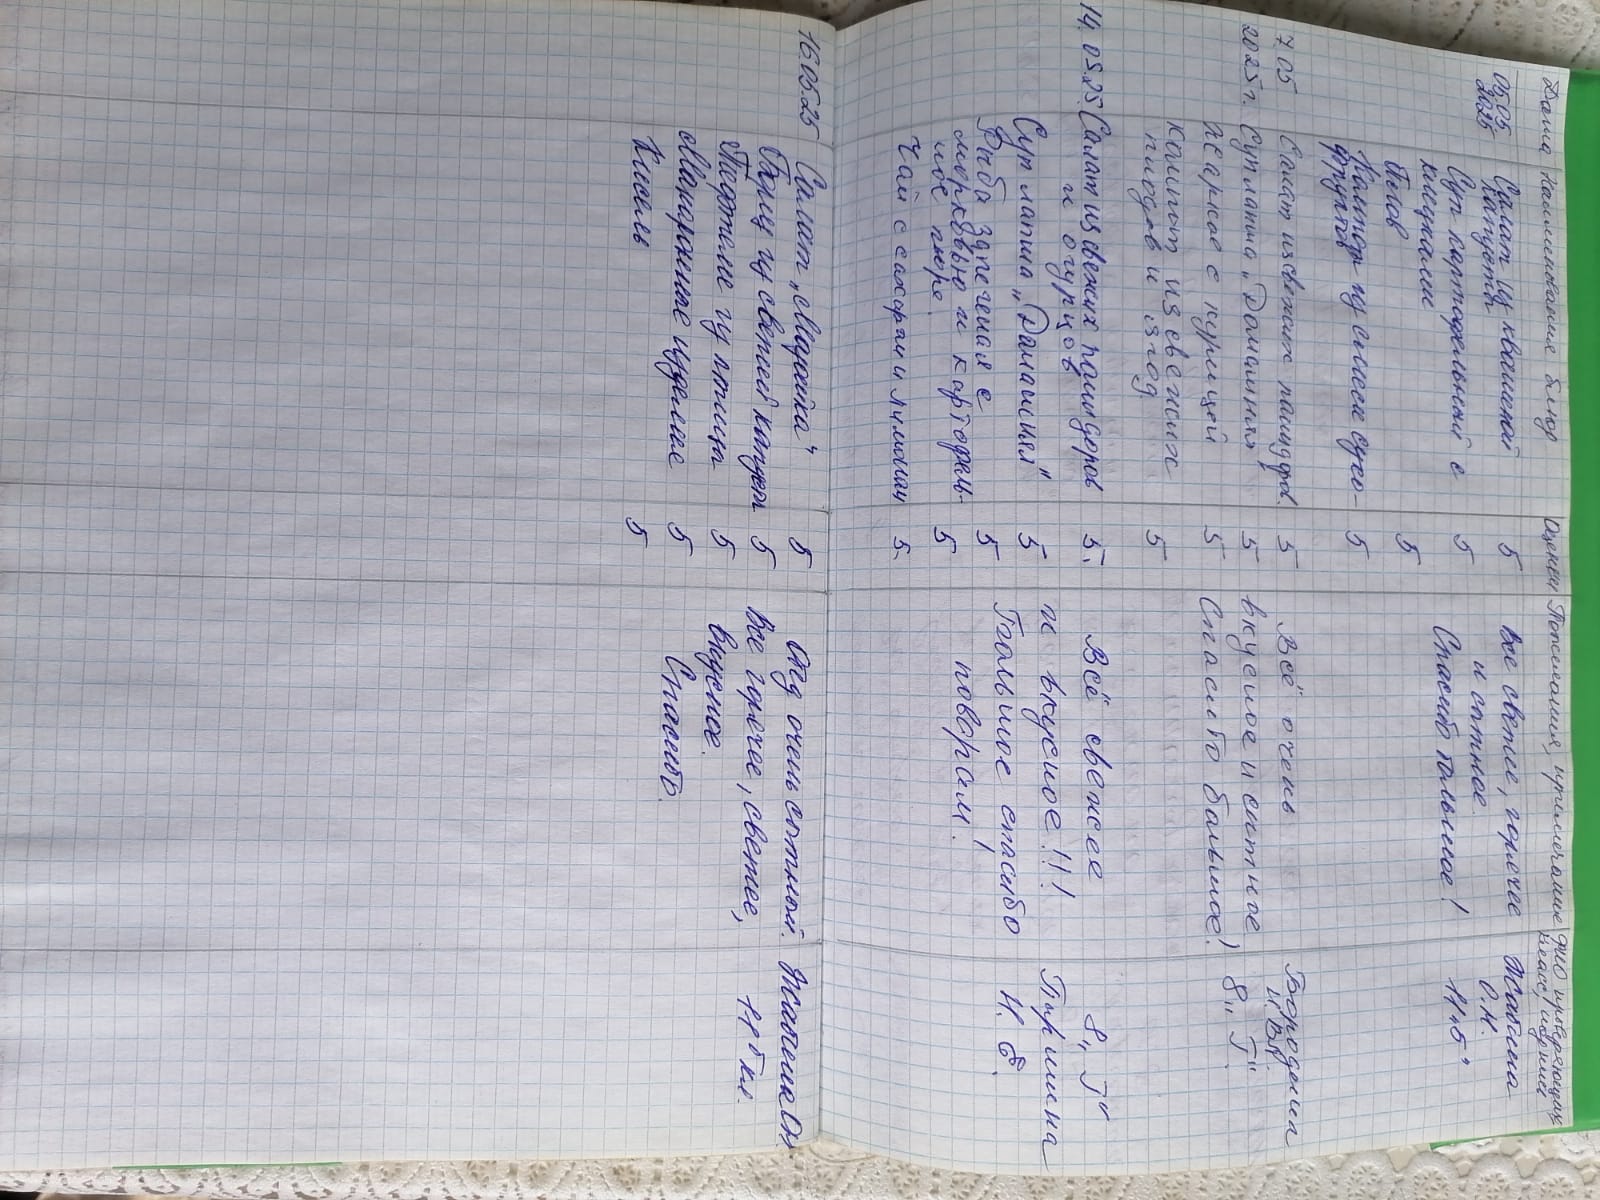 Дата Наименование блюд Оценка Пожелания, примечание ФИО проверяющих класс, подпись
06.05 2025 Салат из квашеной капусты 5 Все свежее, горячее
Суп картофельный с 5 и сытное.
клецками Спасибо большое! 11 "Б"
Плов 5
Компот из смеси сухо- 5
фруктов
7.05 Салат из свежих помидоров 5 Всё очень Бородина
2025 г. Суп лапша "Домашняя" 5 вкусное и сытное И.В.
Жаркое с курицей 5 Спасибо большое! 8 "Г"
Компот из свежих
плодов и ягод 5
14.05.25 Салат из свежих помидоров 5 Всё свежее 8 "Г"
и огурцов и вкусное!!!
Суп лапша "Домашняя" 5 Большое спасибо
Рыба запеченая с 5 поварам!
морковью и картофель- 5
ное пюре.
Чай с сахаром и лимоном 5
16.05.25 Салат 5 Обед очень сытный.
Борщ из свежей капусты 5 Все горячее, свежее,
из птицы 5 вкусное. 11 б кл.
Макаронные изделие 5 Спасибо.
Кисель 5